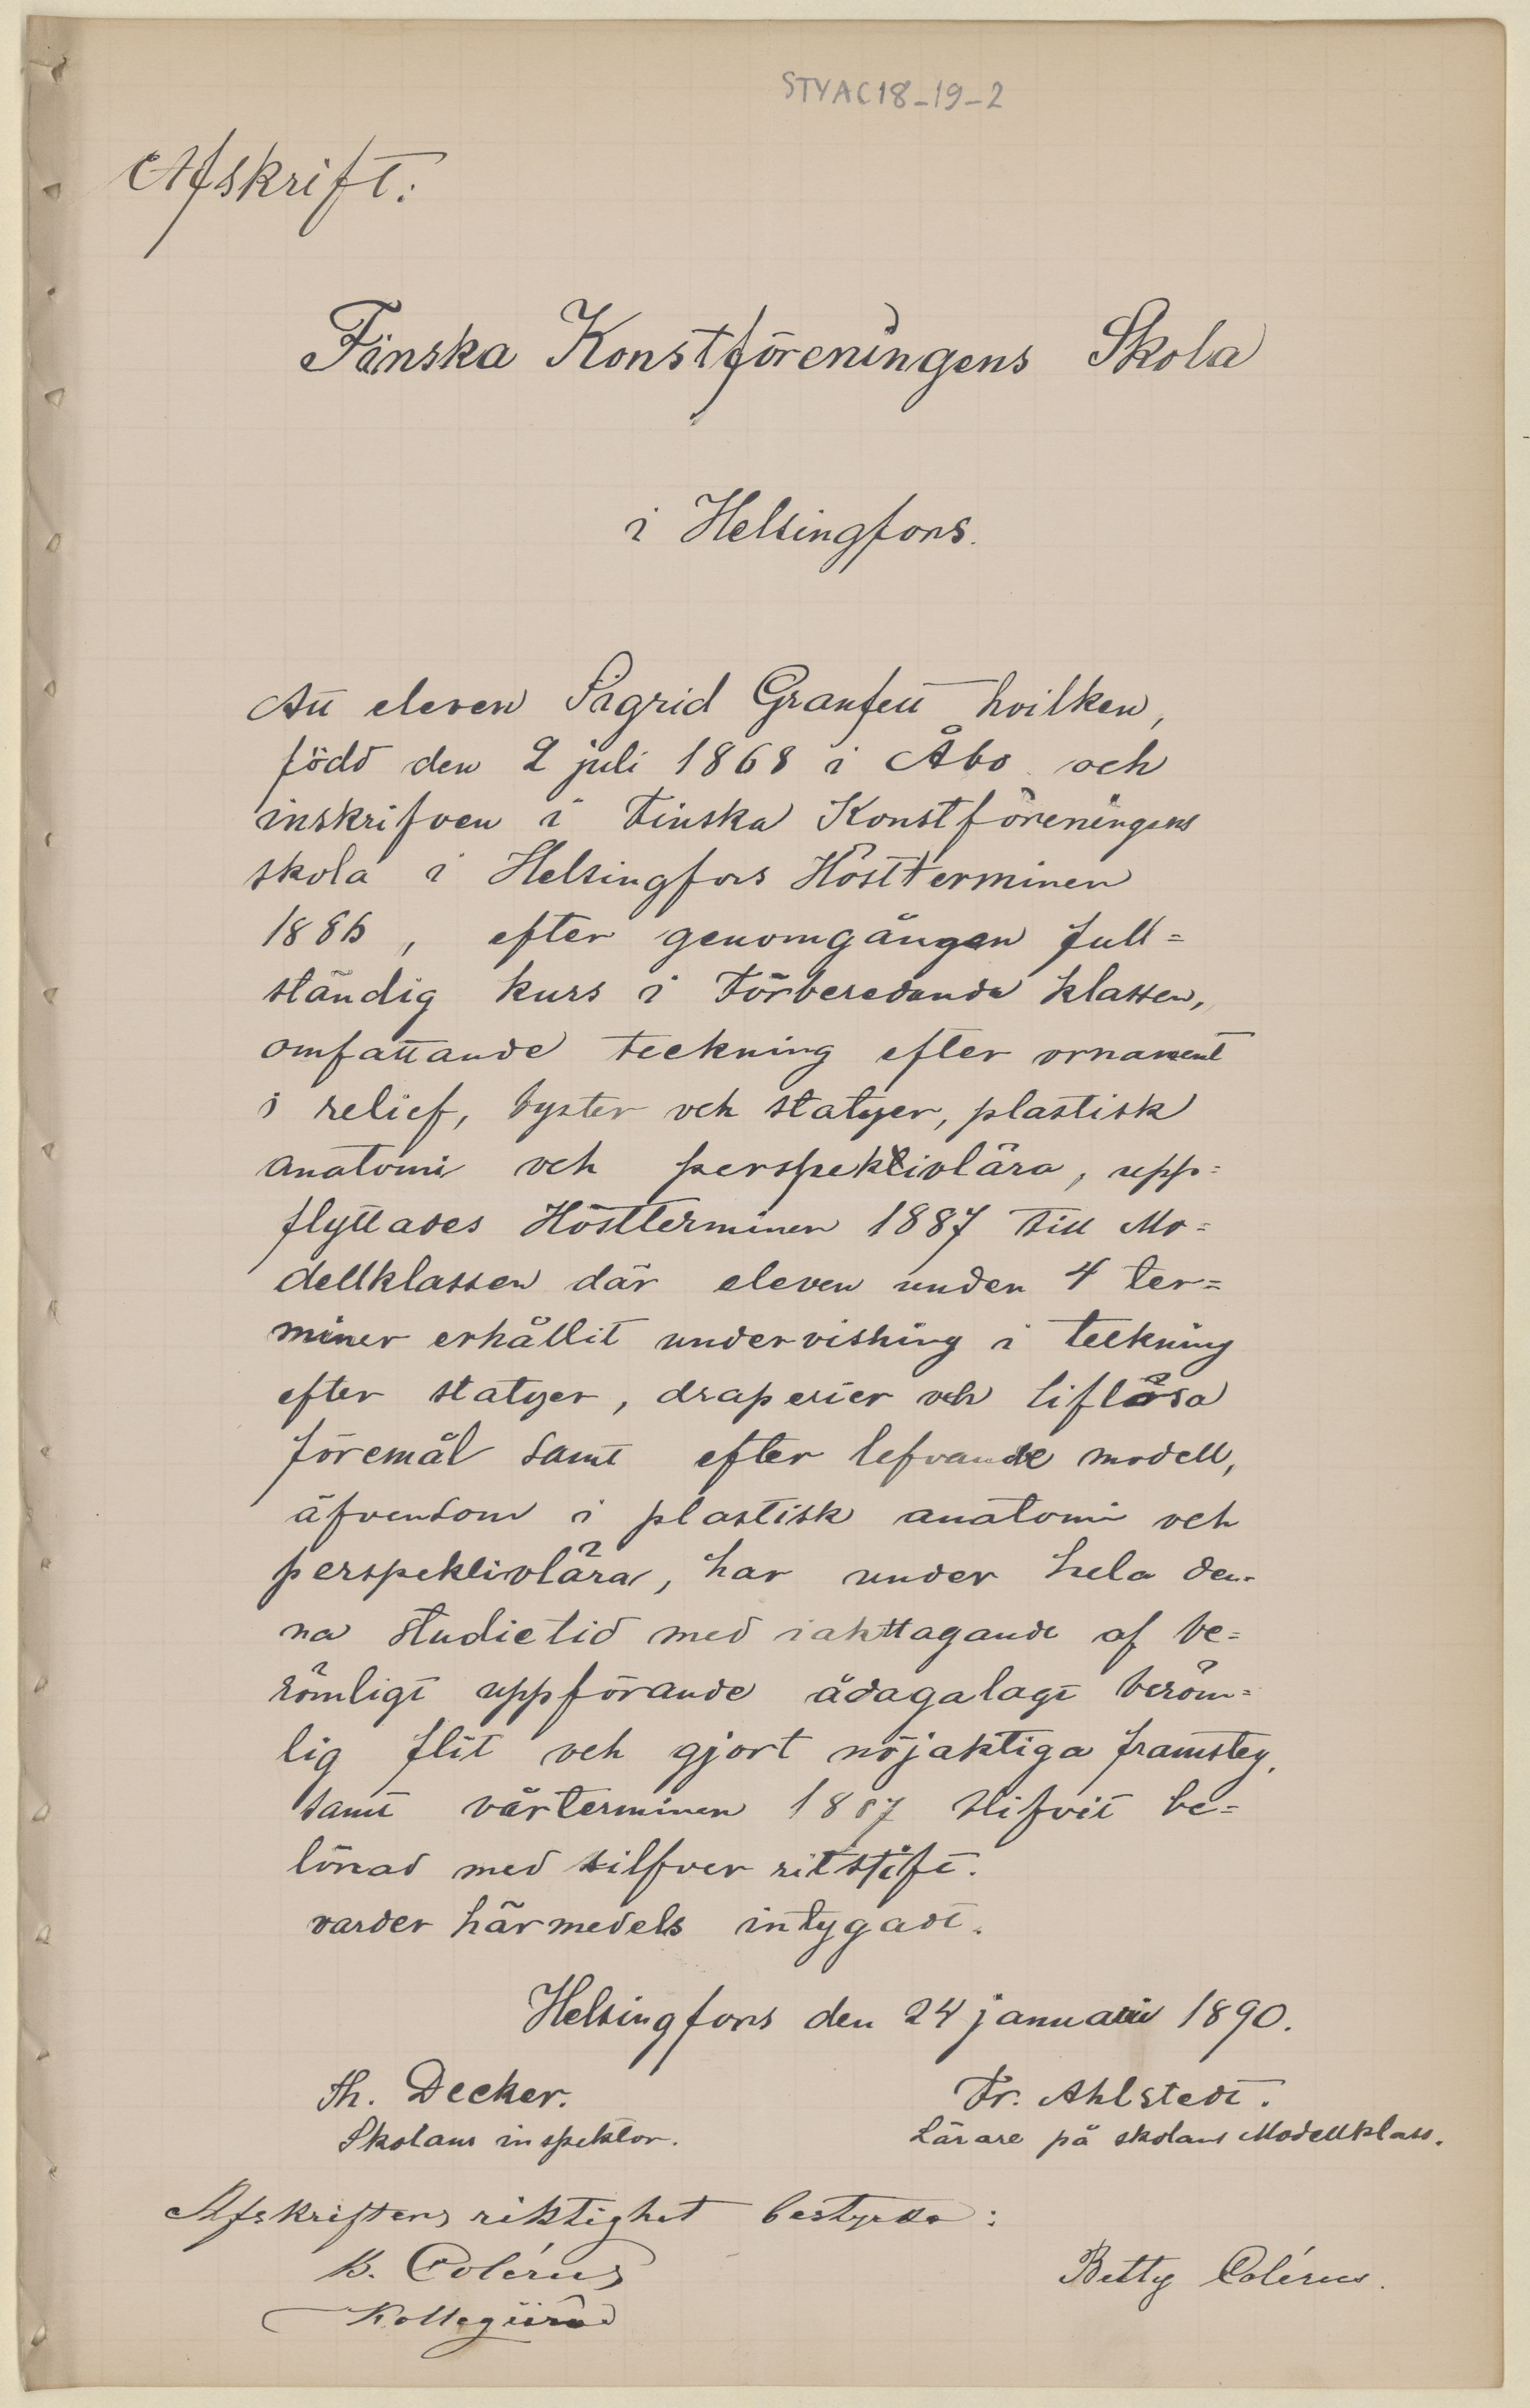 STYAC18_19_2
Afskrift:
Finska Konstföreningens Skola
i Helsingfors.
Att eleven Sigrid Granfelt hvilken,
född den 2 juli 1868 i Åbo och
inskrifven i Finska Konstföreningens
skola i Helsingfors Höstterminen
1886, efter genomgången full=
ständig kurs i Förberedande klassen,
omfattande teckning efter ornament
i relief, byster och statyer, plastisk
anatomi och perspektivlära, upp=
flyttades Höstterminen 1887 till Mo=
dellklassen där eleven under 4 ter=
miner erhållit undervisning i teckning
efter statyer, draperier och liflösa
föremål samt efter lefvande modell,
äfvensom i plastisk anatomi och
perspektivlära, har under hela den-
na studietid med iakttagande af be=
römligt uppförande ådagalagt beröm=
lig flit och gjort nöjaktiga framsteg,
samt vårterminen 1887 blifvit be=
lönad med silfver ritstift.
varder härmedels intygadt.
Helsingfors den 24 januari 1890.
Th. Decker. Fr. Ahlstedt.
Skolans inspektor. Lärare på skolans Modellklass.
Afskriftens riktighet bestyrka:
K. Colérus Betty Colérus.
Kollegiiråd